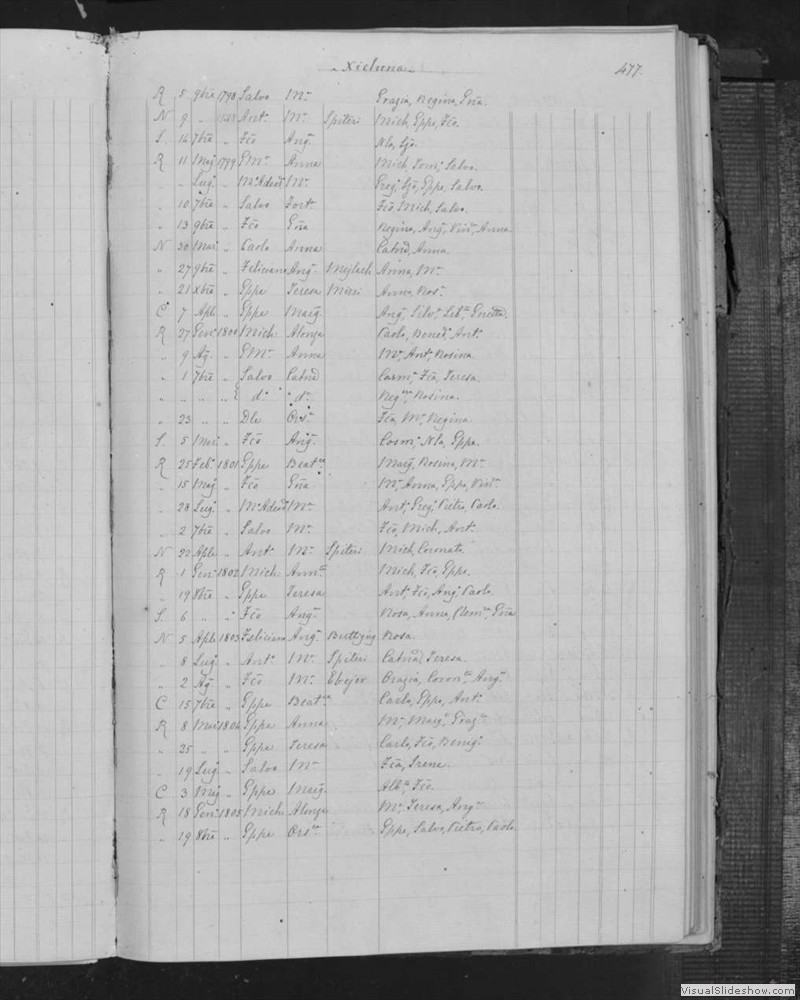 Xicluna 477
R 5 9bre 1798 Salvo Mª Grazia, Regina, Eña
N 9 " Antº Mª Spiteri Mich, Gppe, Fcõ
S. 14 7bre " Fcõ Angª Nlo
R 11 Magº 1799 GMª Anna Mich, Salvo
" Lugº " Mº Adeodº Mª Gregº Gppe, Salvo
10 7bre " Salvo Fortª Fcõ, Mich, Salvo
" 13 9bre " Fcõ Eña Regina, Angª Anna
N 30 Mar. " Carlo Anna Catnã, Anna
" 27 9bre " Feliciano Angª Mejlach Anna, Mª
" 21 Xbre " Gppe Teresa Missi Anna, Rosª
C 7 Apl. " Gppe Margª Angª Silvª
R 27 Genº 1800 Mich Alonza Carlo, Benedº Antº
" 9 Agº " GMª Anna Mª, Antº Rosina
" 1 7bre " Salvo Catnã Cosmº, Fcã, Teresa
" " " " dº dª Rosina
" 23 " " Dle Orsª Fcã, Mª, Regina
S. 5 Mar. " Fcõ Angª Cosmº, Nlo, Gppe
R 25 Febº 1801 Gppe Beatce Margª, Rosina, Mª
" 15 Magº " Fcõ Eña Mª, Anna, Gppe
" 28 Lugº " Mº Adeodº Mª Antº Gregº, Pietro, Carlo
" 2 7bre " Salvo Mª Fcõ, Mich, Antº
N 22 Apl. " Antº Mª Spiteri Mich, Coronata
R 1 Genº 1802 Mich Annca Mich, Fcõ, Gppe
" 19 8bre " Gppe Teresa Antº, Fcõ, Angº, Carlo
S. 6 " " Fcõ Angª Rosa, Anna, Clemª, Eña
N 5 Apl. 1803 Feliciano Angª Buttigieg Rosa
" 8 Lugº " Antº Mª Spiteri Catnã, Teresa
" 2 Agº " Fcõ Mª Ebejer Orazia, Coronª, Angª
C 15 7bre " Gppe Beatce Carlo, Gppe, Antº
R 8 Mar. 1804 Gppe Anna Mª, Margª, Grazª
" 25 " " Gppe Teresa Carlo, Fcõ, Benigº
" 19 Lugº " Salvo Mª Fcã, Irene
C 3 Magº " Gppe Margª Fcõ
R 18 Genº 1805 Mich Alonza Mª, Teresa, Angª
" 19 8bre " Gppe Orsª Gppe, Salvo, Pietro, Carlo
VisualSlideshow.com